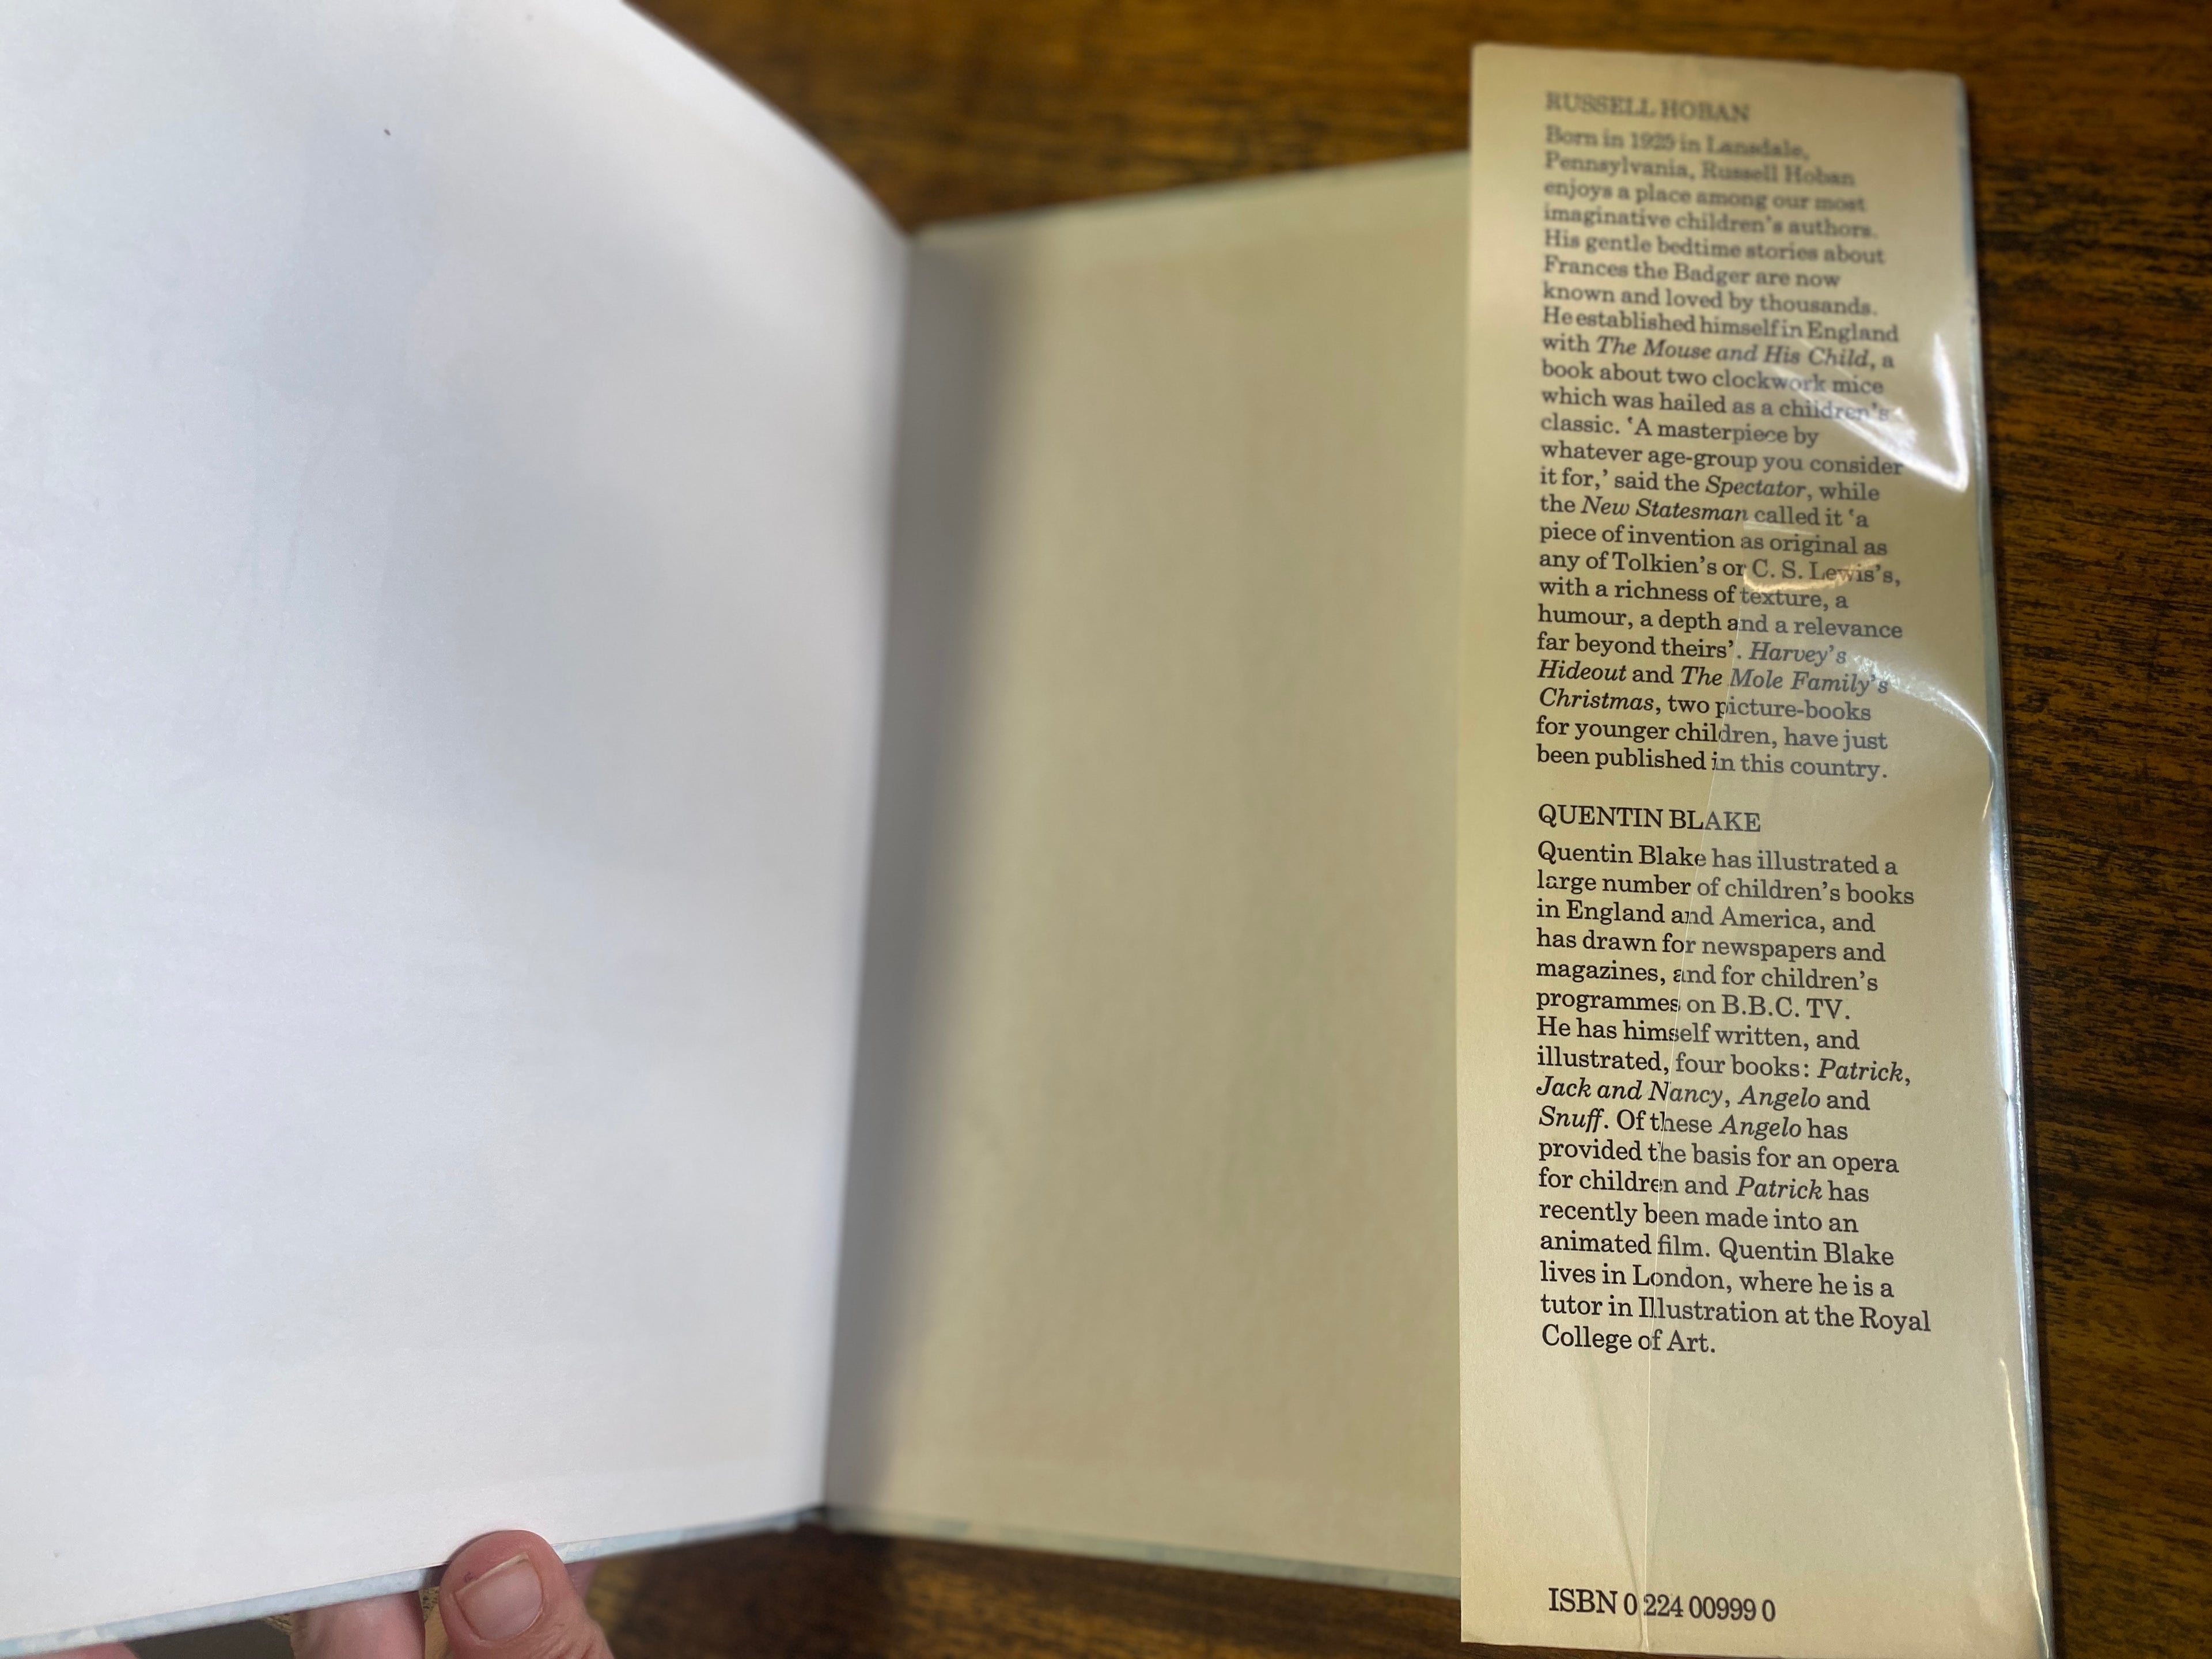 RUSSELL HOBAN
Born in 1925 in Lansdale,
Pennsylvania, Russell Hoban
enjoys a place among our most
imaginative children's authors.
His gentle bedtime stories about
Frances the Badger are now
known and loved by thousands.
He established himself in England
with The Mouse and His Child, a
book about two clockwork mice
which was hailed as a children's
classic. ‘A masterpiece by
whatever age-group you consider
it for,’ said the Spectator, while
the New Statesman called it ‘a
piece of invention as original as
any of Tolkien's or C. S. Lewis's,
with a richness of texture, a
humour, a depth and a relevance
far beyond theirs’. Harvey's
Hideout and The Mole Family's
Christmas, two picture-books
for younger children, have just
been published in this country.
QUENTIN BLAKE
Quentin Blake has illustrated a
large number of children's books
in England and America, and
has drawn for newspapers and
magazines, and for children's
programmes on B.B.C. TV.
He has himself written, and
illustrated, four books: Patrick,
Jack and Nancy, Angelo and
Snuff. Of these Angelo has
provided the basis for an opera
for children and Patrick has
recently been made into an
animated film. Quentin Blake
lives in London, where he is a
tutor in Illustration at the Royal
College of Art.
ISBN 0 224 00999 0